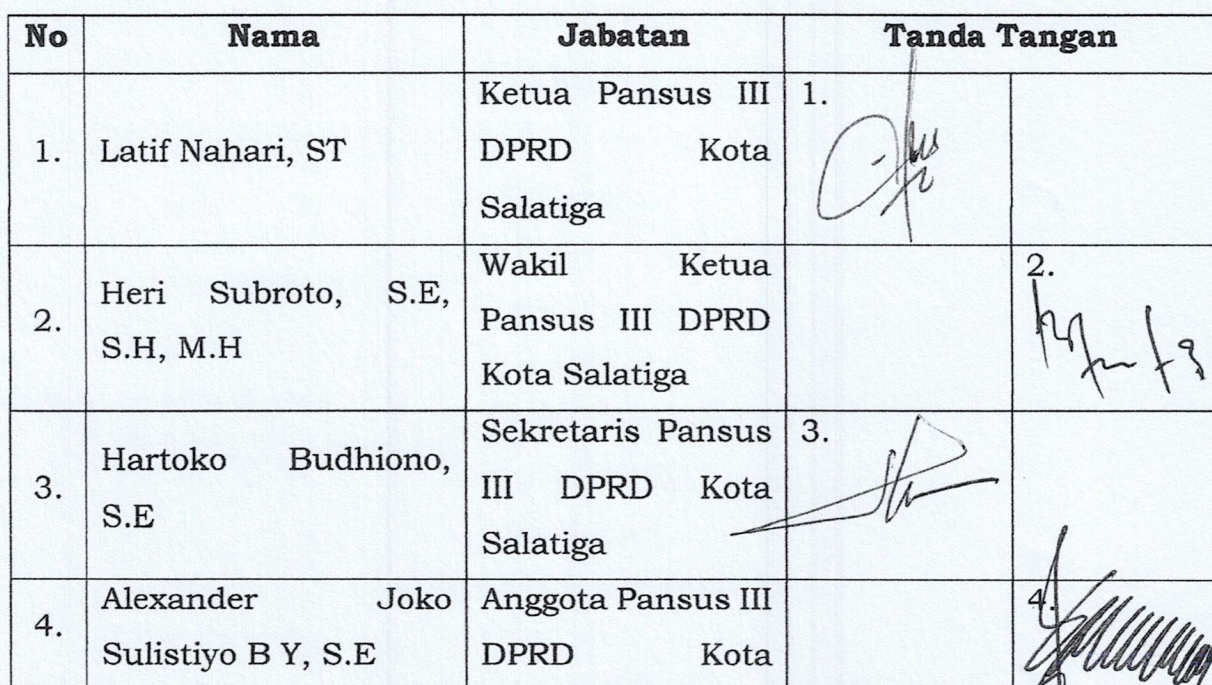 No Nama Jabatan Tanda Tangan
1. Latif Nahari, ST
Ketua Pansus III
DPRD Kota
Salatiga
1.
2. Heri Subroto, S.E,
S.H, M.H
Wakil Ketua
Pansus III DPRD
Kota Salatiga
2.
3. Hartoko Budhiono,
S.E
Sekretaris Pansus
III DPRD Kota
Salatiga
3.
4. Alexander Joko
Sulistiyo B Y, S.E
Anggota Pansus III
DPRD Kota
4.